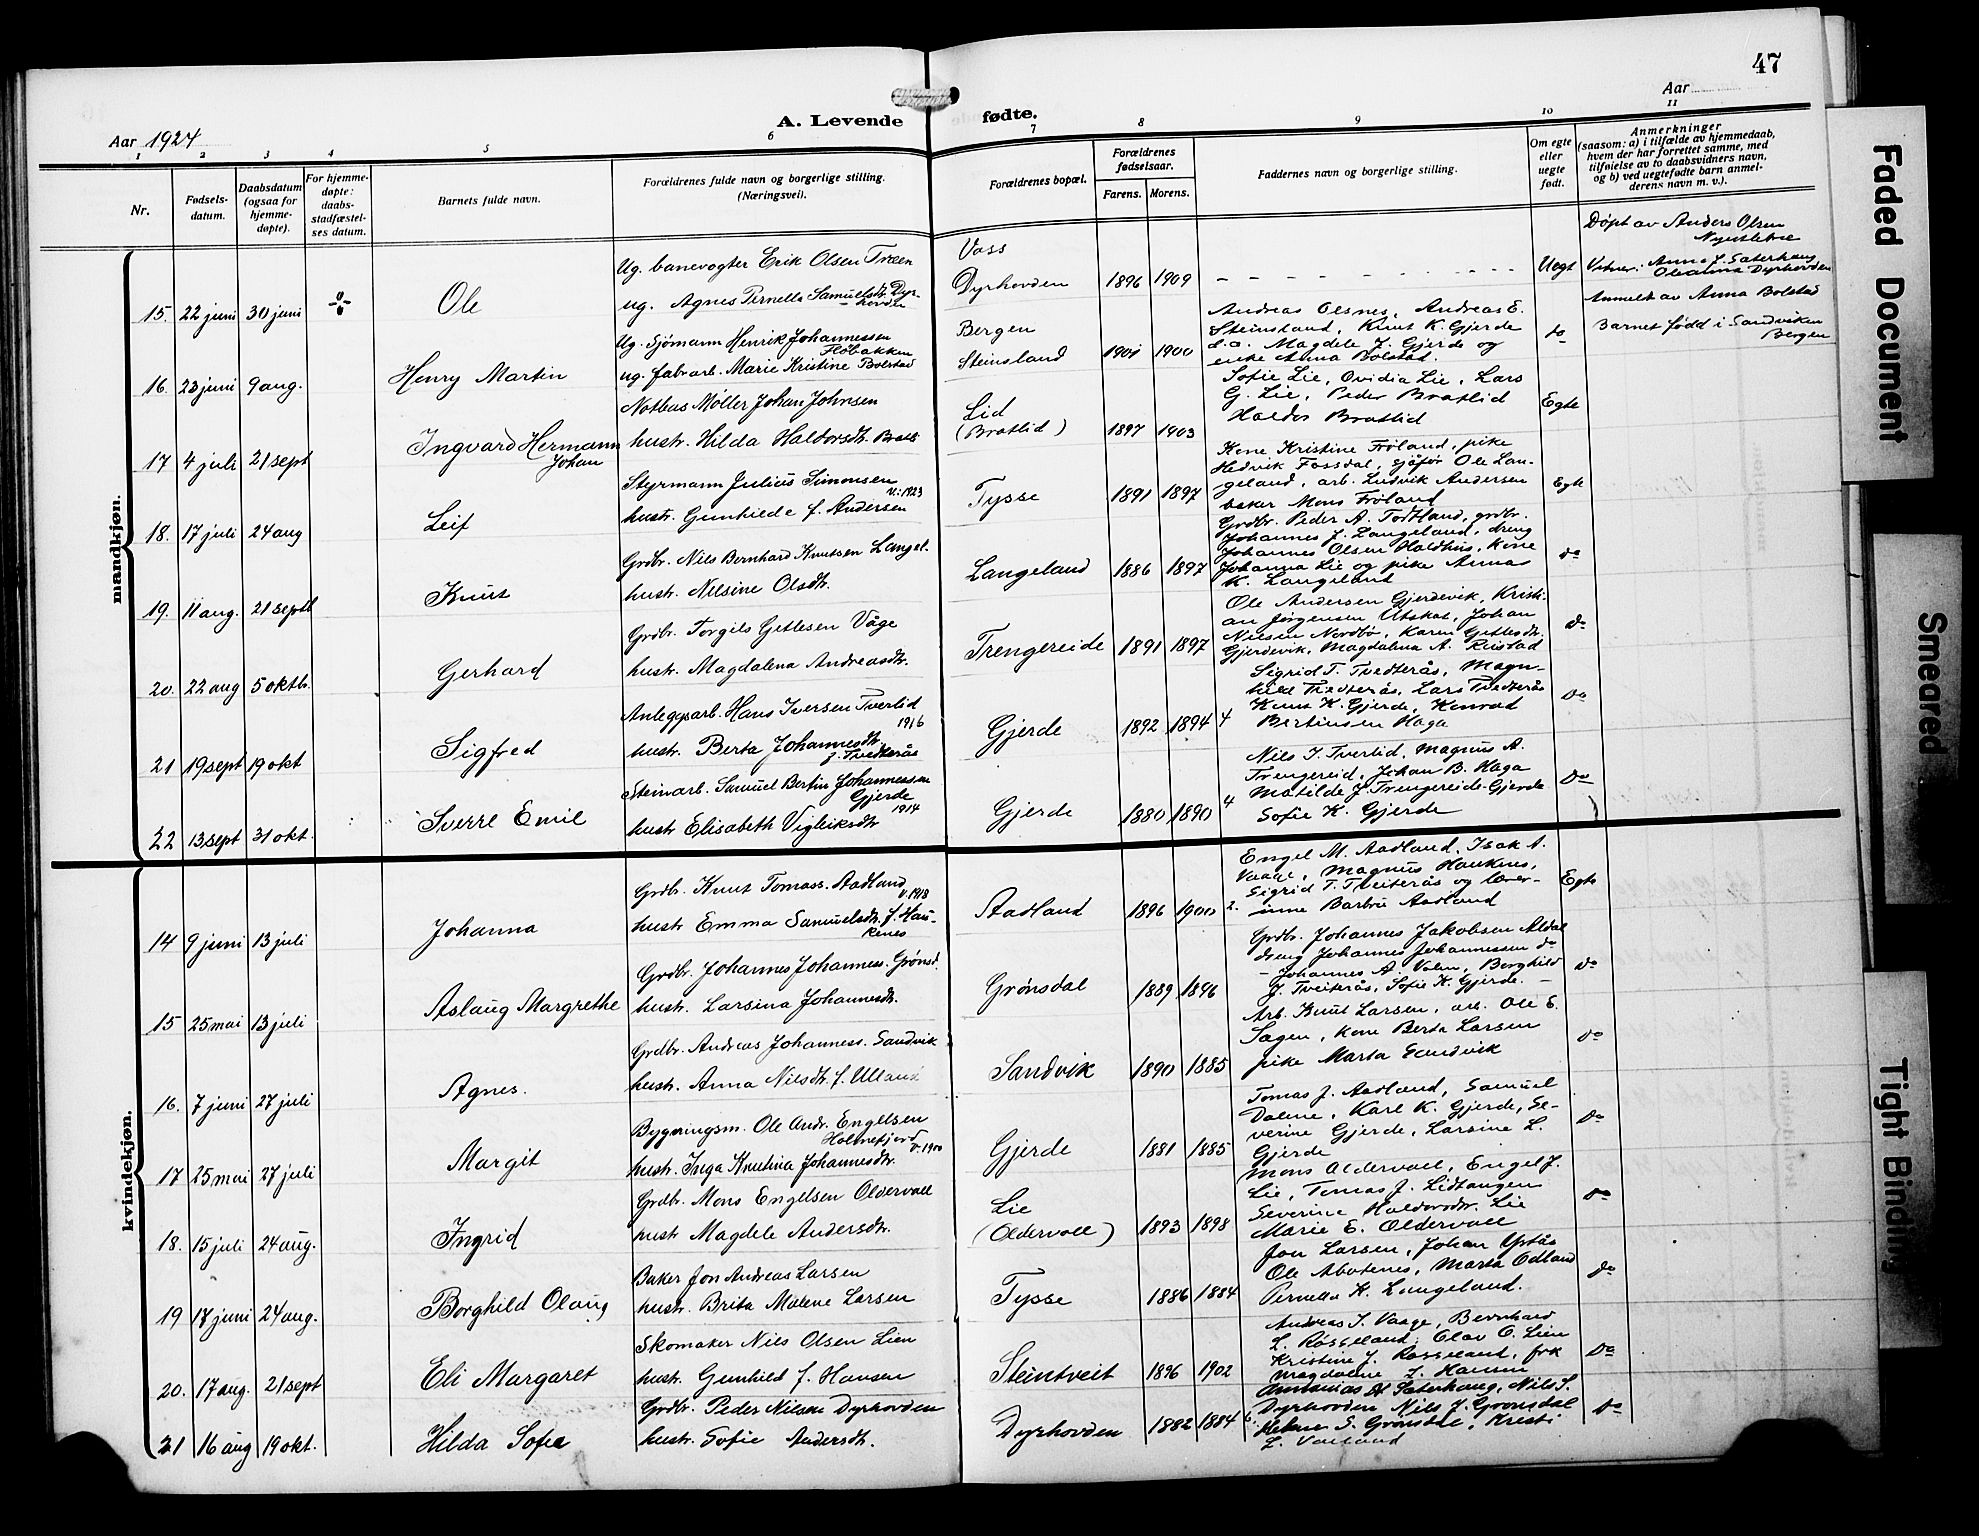 47
Aar 1924
A. Levende fødte.
Aar
1 2 3 4 5 6 7 8 9 10 11
Nr.
Fødsels-
datum.
Daabsdatum
(ogsaa for
hjemme-
døpte).
For hjemme-
døpte:
daabs-
stadfæstel-
ses datum.
Barnets fulde navn.
Forældrenes fulde navn og borgerlige stilling.
(Næringsvei).
Forældrenes bopæl.
Forældrenes
fødselsaar.
Farens. Morens.
Faddernes navn og borgerlige stilling.
Om egte
eller
uegte
født.
Anmerkninger
(saasom: a) i tilfælde av hjemmedaab,
hvem der har forrettet samme, med
tilføielse av to daabsvidners navn,
og b) ved uegtefødte barn anmel-
derens navn m. v.).
mandkjøn.
15. 22 juni 30 juni
Ole
Ug. banevogter Erik Olsen Træen
ug. Agnes Pernella Samuelsdtr. Dyr-
hovden
Voss
Dyrhovden
1896 1909
Uegt
Døpt av Anders Olsen
Vitner: Anna L. Saterhaug
Oleanna Dyrhovden
16. 23 juni 9 aug.
Henry Martin
Ug. Sjømann Henrik Johannessen
Fløbakken
ug. fabr.arb. Marie Kristine Bolstad
Bergen
Steinsland
1901 1900
Andreas Olsnes, Andreas E.
Steinsland, Knut K. Gjerde
s.a. Magdele J. Gjerde og
enke Anna Bolstad.
do
Anmeldt av Anna Bolstad
Barnet född i Sandviken
Bergen
17 4 juli 21 sept
Ingvard Hermann
Johan
Notbas Møller Johan Johnsen
hustr. Hilda Haldorsdtr. Bratl.
Lid
(Bratlid)
1897 1903
Sofie Lie, Ovidia Lie, Lars
G. Lie, Peder Bratlid
Haldor Bratlid
Egte
18. 17 juli 24 aug
Leif
Styrmann Julius Simonsen
v: 1923
hustr. Gunhilde f. Andersen
Tysse
1891 1897
Kone Kristine Frøland, pike
Hedvik Fossdal, sjåfør Ole Lan-
geland, arb. Ludvik Andersen
baker Mons Frøland
Egte
19. 11 aug. 21 septb
Knut
Grdbr. Nils Bernhard Knutsen Langel.
hustr. Nilsine Olsdtr.
Langeland
1886 1897
Grdbr. Peder A. Todtland, grdbr.
Johannes J. Langeland, dreng
Johannes Olsen Haldhus, kone
Johanna Lie og pike Annas
K. Langeland
do
20. 22 aug 5 oktb.
Gerhard
Grdbr. Torgils Getlesen Våge
hustr. Magdalena Andreasdtr.
Trengereide
1891 1897
Ole Andersen Gjerdevik, Kristi-
an Jørgensen Utskot, Johan
Nilsen Nordbø, Karen Getlesdtr.
Gjerdevik, Magdalena A. Reistad
do
21 19 sept 19 okt
Sigfred
Anleggsarb. Hans Iversen Tverlid
1916
hustr. Berta Johannesdtr.
f. Tvedterås
Gjerde
1892 1894 4
Sigrid T. Tvedterås, Magn-
hild Tvedterås, Lars Tvedterås
Knut K. Gjerde, Konrad
Bertinsen Haga
do
22 13 sept 31 okt.
Sverre Emil
Steinarb. Samuel Bertin Johannessen
Gjerde
1914
hustr Elisabeth Vigleiksdtr
Gjerde
1880 1890 4
Nils I. Tverlid, Magnus A.
Trengereid, Johan B. Haga
Matilde J. Trengereide-Gjerde
Sofie K. Gjerde
do
kvindekjøn.
14 9 juni 13 juli
Johanna
Grdbr. Knut Tomass. Aadland
v. 1918
hustr Emma Samuelsdtr. f. Hau-
kenes
Aadland
1896 1900 2.
Engel M. Aadland, Isak A.
Vaage, Magnus Haukenes,
Sigrid T. Tveiterås og lærer-
inne Barbru Aadland
Egte
15 25 mai 13 juli
Aslaug Margrethe
Grdbr. Johannes Johanness. Grønsd.
hustr. Larsina Johannesdtr.
Grønsdal
1889 1896
Grdbr. Johannes Jakobsen Aldal
dreng Johannes Johannessen do
- Johannes A. Valen, Borghild
J. Tveiterås, Sofie K. Gjerde. -
do
16. 7 juni 27 juli
Agnes.
Grdbr. Andreas Johanness. Sandvik
hustr. Anna Nilsdtr. f. Ulland
Sandvik
1890 1885
Arb. Knut Larsen, arb. Ole E.
Sagen, kone Berta Larsen
pike Marta Sandvik
do
17 25 mai 27 juli
Margit
Bygningsm. Ole Andr. Engelsen
Holmefjord
v. 1900
hustr. Inga Knutina Johannesdtr.
Gjerde
1881 1885
Tomas J. Aadland, Samuel
Dalene, Karl K. Gjerde, Se-
verine Gjerde, Larsine L.
Gjerde
do
18. 15 juli 24 aug.
Ingrid
Grdbr. Mons Engelsen Oldervoll
hustr Magdele Andersdtr.
Lie
(Oldervoll)
1893 1898
Mons Oldervoll, Engel J.
Lie, Tomas J. Lidtangen
Severine Haldorsdtr. Lie
Marie E. Oldervoll
do
19 18 juni 24 aug.
Borghild Olaug
Baker Jon Andreas Larsen
hustr. Brita Malene Larsen
Tysse
1886 1884
Jon Larsen, Johan Ystås
Ole Abotenes, Marta Odland
Pernella K. Langeland.
do
20. 17 aug. 21 sept
Eli Margaret
Skomaker Nils Olsen Lien
hustr. Gunhild f. Hansen
Steintveit
1896 1902
Andreas I. Vaage, Bernhard
L. Røsseland, Olav O. Lien
Kristine J. Røsseland, frk
Magdalene L. Hansen
do
21 16 aug 19 okt.
Hilda Sofie
Grdbr. Peder Nilsen Dyrhovden
hustr. Sofie Andersdtr.
Dyrhovden
1882 1884 6
Antonius A. Saterhaug, Nils S.
Dyrhovden Nils J. Grønsdal
Helene S. Grønsdal, Kristi
L. Vaeland
do
Faded Document
Smeared
Tight Binding